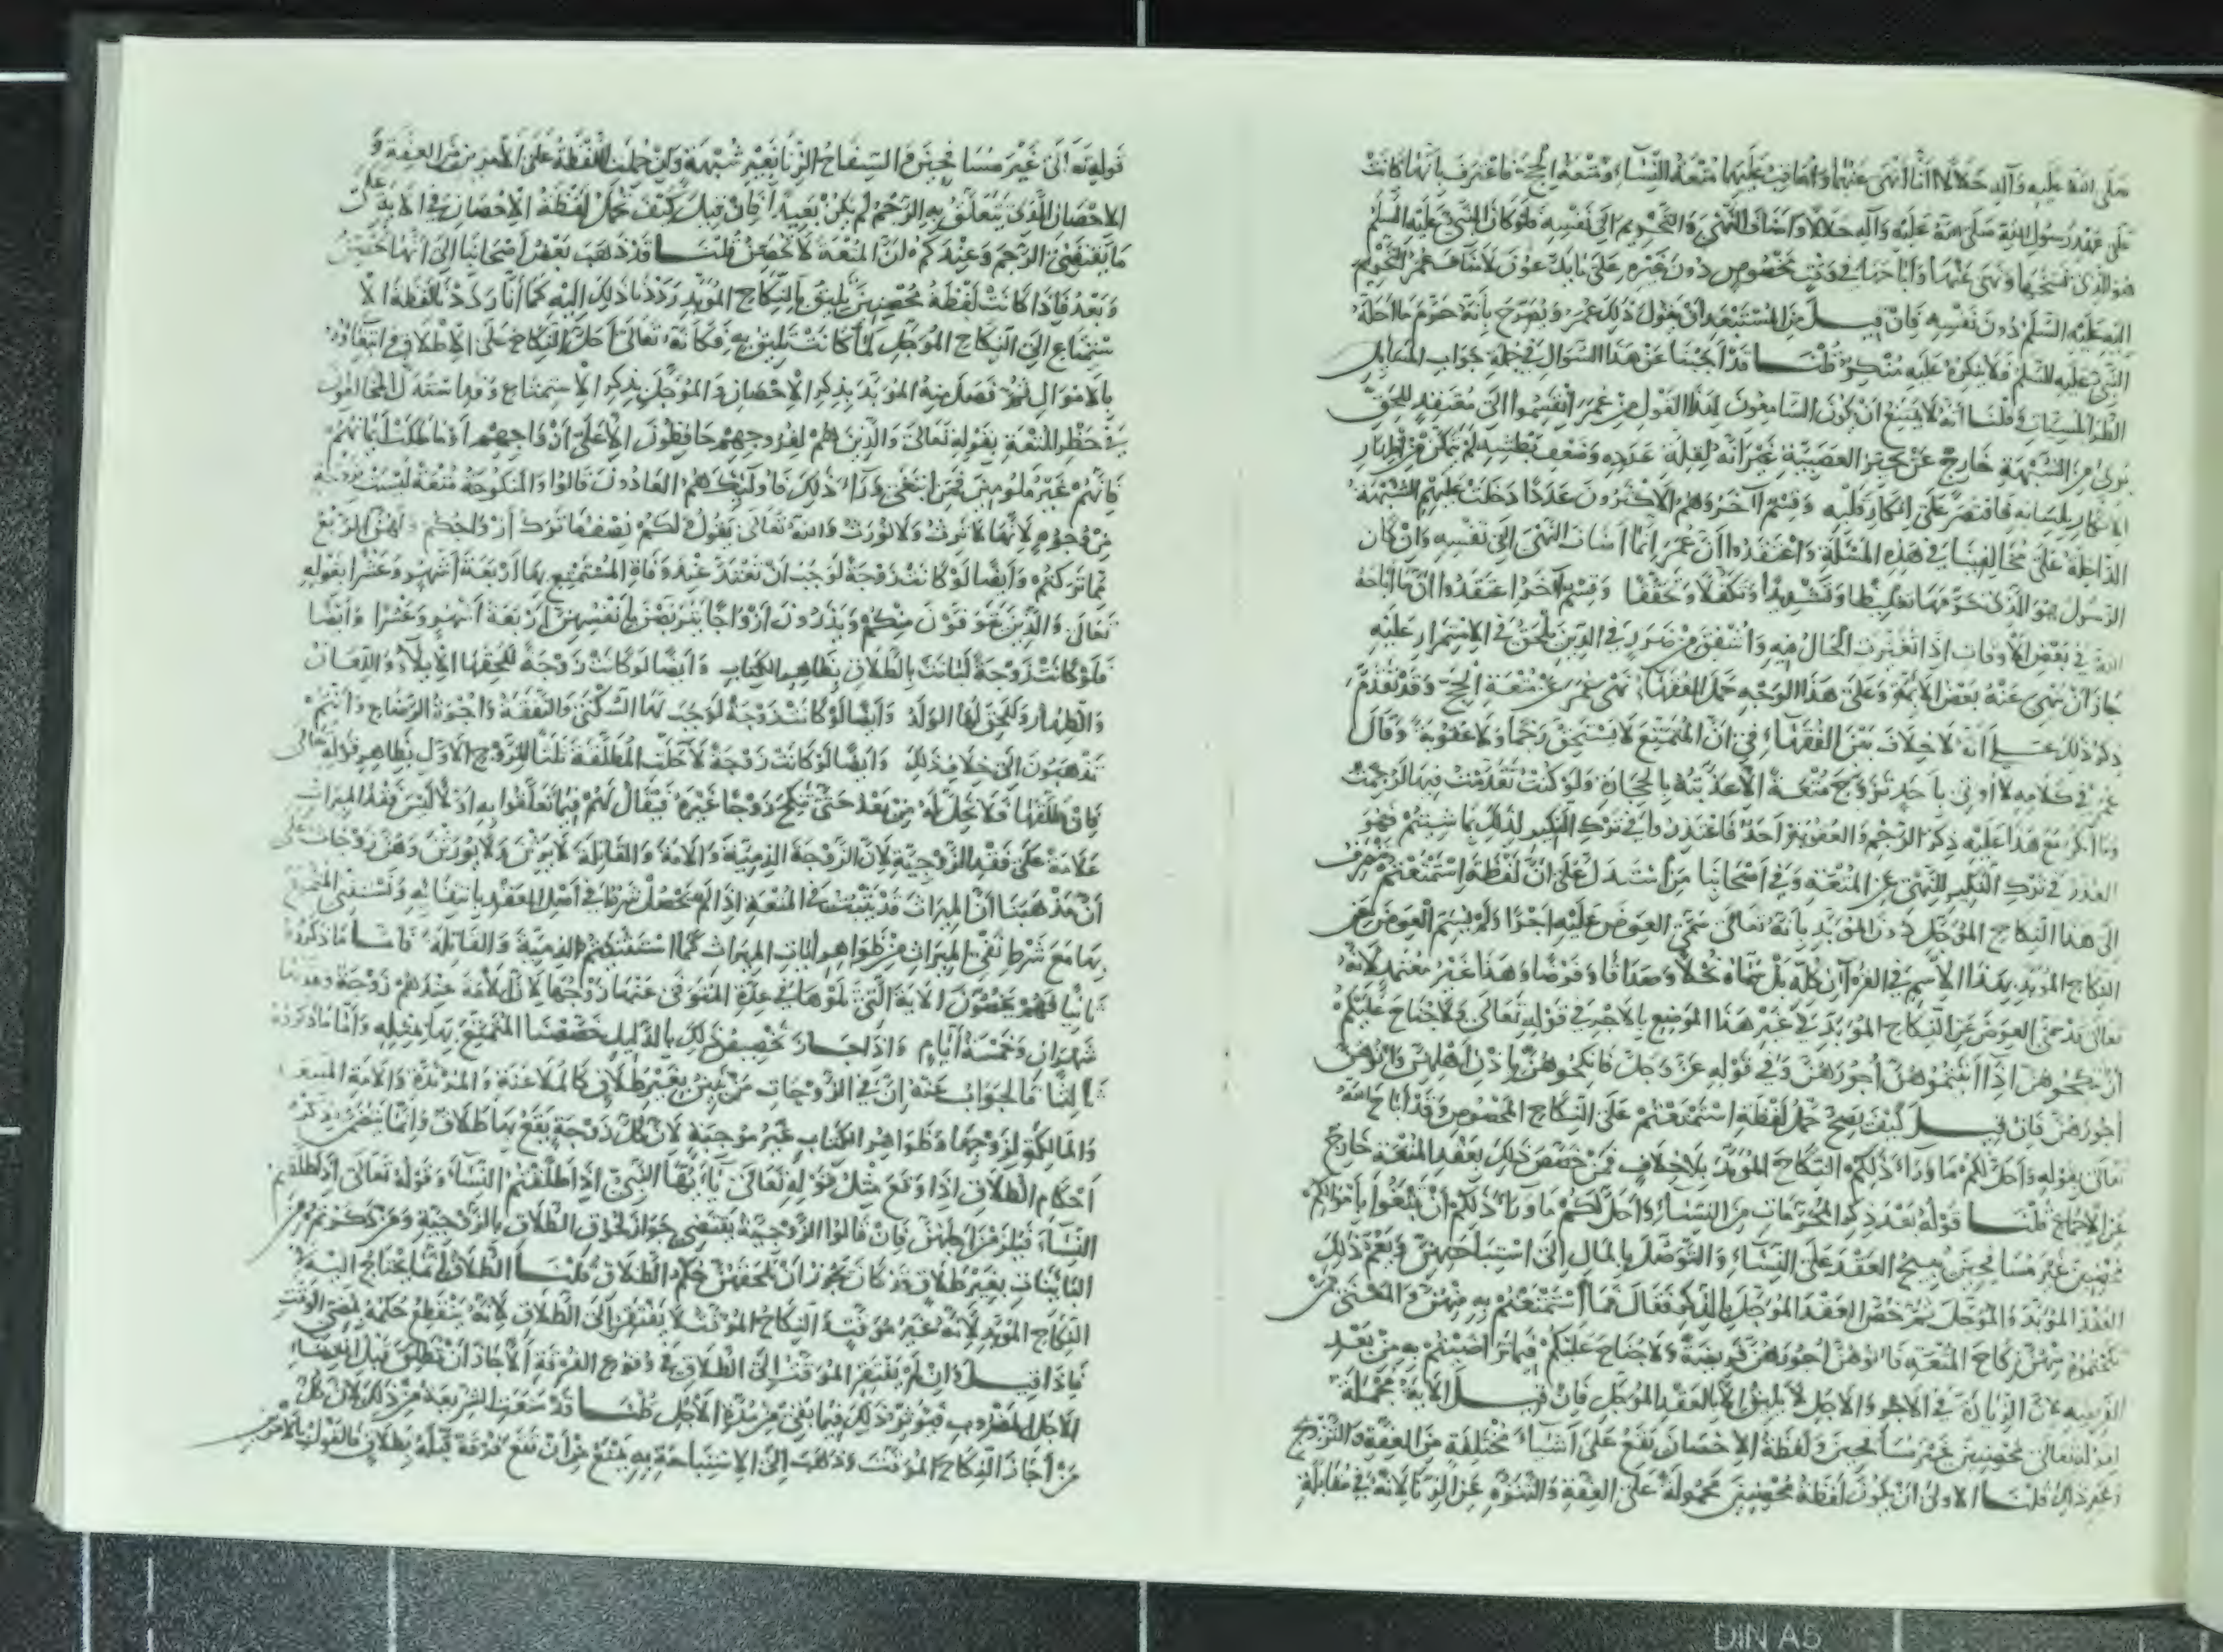 صلى الله عليه وآله حلالا انا انهى عنهما واعاقب عليهما متعة النساء ومتعة الحج فاعترف بانها كانت
على عهد رسول الله صلى الله عليه وآله حلالا واضاف النهي والتحريم الى نفسه فلو كان النبي عليه السلم
هو الذي نسخها ونهى عنها واباحها في وقت مخصوص دون غيره على ما يدعون لاضاف عمر التحريم
اليه عليه السلم دون نفسه فان قيل من المستبعد ان يقول ذلك عمر ويصرح بانه حرم ما احله
النبي عليه السلم فلا ينكره عليه منكر قلنا قد اجبنا عن هذا السوال في جملة جواب المسايل
الطرابلسيات وقلنا انه لا يمتنع ان يكون السامعون لهذا القول من عمر انقسموا الى معتقد للحق
برئ من الشبهة خارج عن حيز العصبية غير انه لقلة عدده وضعف بطشه لم يتمكن من اظهار
الانكار بلسانه فاقتصر على انكار قلبه وقسم آخر وهم الاكثرون عددا دخلت عليهم الشبهة
الداخلة على مخالفينا في هذه المسئلة واعتقدوا ان عمر انما اضاف النهي الى نفسه وان كان
الرسول هو الذي حرمها تغليظا وتشديدا وتكفلا وتحققا وقسم آخر اعتقدوا ان ما اباحه
الله في بعض الاوقات اذا تغيرت الحال فيه واشفق من ضرر في الدين يلحق في الاستمرار عليه
جاز ان ينهى عنه بعض الائمة وعلى هذا الوجه حمل الفقهاء نهى عمر عن متعة الحج وقد تقدم
ذكر ذلك على انه لا خلاف بين الفقهاء في ان المتمتع لا يستحق رجما ولا عقوبة وقال
عمر في كلامه لا اوتى باحد تزوج متعة الا عذبته بالحجارة ولو كنت تقدمت فيها لرجمت
وما انكر مع هذا عليه ذكر الرجم والعقوبة احد فاعتذروا في ترك النكير لذلك بما شيتم فهو
العذر في ترك النكير للنهي عن المتعة وفي اصحابنا من استدل على ان لفظة استمتعتم تنصرف
الى هذا النكاح المؤجل دون المؤبد بانه تعالى سمى العوض عليه اجرا ولم يسم العوض عن
النكاح المؤبد بهذا الاسم في القرآن كله بل سماه نحلا وصداقا وفرضا وهذا غير معتمد لانه
تعالى قد سمى العوض عن النكاح المؤبد في غير هذا الموضع بالاجر في قوله تعالى ولا جناح عليكم
ان تنكحوهن اذا آتيتموهن اجورهن وفي قوله عز وجل فانكحوهن باذن اهلهن وآتوهن
اجورهن فان قيل كيف يصح حمل لفظة استمتعتم على النكاح المخصوص وقد اباح الله
تعالى بقوله واحل لكم ما وراء ذلكم النكاح المؤبد بلا خلاف فمن خصص ذلك بعقد المتعة خارج
عن الاجماع قلنا قوله بعد ذكر المحرمات من النساء واحل لكم ما وراء ذلكم ان تبتغوا باموالكم
محصنين غير مسافحين يبيح العقد على النساء والتوصل بالمال الى استباحتهن ويعم ذلك
العقد المؤبد والمؤجل ثم خص العقد المؤجل بالذكر فقال فما استمتعتم به منهن والمعنى فمن
نكحتموه منهن نكاح المتعة فآتوهن اجورهن فريضة ولا جناح عليكم فيما تراضيتم به من بعد
الفريضة لان الزيادة في الاجر والاجل لا يليق الا بالعقد المؤجل فان قيل الآية مجملة
لقوله تعالى محصنين غير مسافحين ولفظة الاحصان تقع على اشياء مختلفة من العفة والتزوج
وغير ذلك قلنا الاولى ان يكون لفظة محصنين محمولة على العفة والتنزه عن الزنا لانه في مقابلة
قوله تعالى غير مسافحين والسفاح الزنا بغير شبهة ولو حملت اللفظة على الامرين من العفة و
الاحصان الذي يتعلق به الرجم لم يكن بعيدا فان قيل كيف نحمل لفظة الاحصان في الآية على
ما يقتضي الرجم وعندكم ان المتعة لا تحصن قلنا قد ذهب بعض اصحابنا الى انها تحصن
وبعد فاذا كانت لفظة محصنين يليق بالنكاح المؤبد رددنا ذلك اليه كما انا رددنا لفظة الا
ستمتاع الى النكاح المؤجل لما كانت تليق به فكانه تعالى احل النكاح على الاطلاق وابتغاءه
بالاموال ثم فصل منه المؤبد بذكر الاحصان والمؤجل بذكر الاستمتاع وقد استدل المخالفون
في حظر المتعة بقوله تعالى والذين هم لفروجهم حافظون الا على ازواجهم او ما ملكت ايمانهم
فانهم غير ملومين فمن ابتغى وراء ذلك فاولئك هم العادون قالوا والمنكوحة متعة ليست بزوجة
من وجوه لانها لا ترث ولا تورث والله تعالى يقول ولكم نصف ما ترك ازواجكم ولهن الربع
مما تركتم وايضا لو كانت زوجة لوجب ان تعتد عند وفاة المستمتع بها اربعة اشهر وعشرا بقوله
تعالى والذين يتوفون منكم ويذرون ازواجا يتربصن بانفسهن اربعة اشهر وعشرا وايضا
فلو كانت زوجة لبانت بالطلاق بظاهر الكتاب وايضا لو كانت زوجة للحقها الايلاء واللعان
والظهار وللحق بها الولد وايضا لو كانت زوجة لوجب لها السكنى والنفقة واجرة الرضاع وانتم
تذهبون الى خلاف ذلك وايضا لو كانت زوجة لاحلت المطلقة ثلثا للزوج الاول بظاهر قوله تعالى
فان طلقها فلا تحل له من بعد حتى تنكح زوجا غيره فيقال لهم فيما تعلقوا به اولا ليس فقد الميراث
علامة على فقد الزوجية لان الزوجة الذمية والامة والقاتلة لا يرثن ولا يورثن وهن زوجات على
ان مذهبنا ان الميراث قد يثبت في المتعة اذا لم يحصل شرط في اصل العقد بانتفائه ونستثني المتمتع
بها مع شرط نفي الميراث من ظواهر آيات الميراث كما استثنيتم الذمية والقاتلة فاما ما ذكروه
ثانيا فهم يخصون الآية التي تلوها في عدة المتوفى عنها زوجها لان الامة عندهم زوجة وعدتها
شهران وخمسة ايام واذا جاز تخصيص ذلك بالدليل خصصنا المتمتع بها بمثله واما ما ذكروه
ثالثا فالجواب عنه ان في الزوجات من تبين بغير طلاق كالملاعنة والمرتدة والامة المبيعة
والمالكة لزوجها وظواهر الكتاب غير موجبة لان كل زوجة يقع بها طلاق وانما يتضمن ذكر
احكام الطلاق اذا وقع مثل قوله تعالى يا ايها النبي اذا طلقتم النساء وقوله تعالى اذا طلقتم
النساء فبلغن اجلهن فان قالوا الزوجية يقتضي جواز لحوق الطلاق بالزوجية ومن ذكرتم من
البائنات بغير طلاق قد كان يجوز ان يلحقهن حكم الطلاق قلنا الطلاق انما يحتاج اليه في
النكاح المؤبد لانه غير موقت والنكاح الموقت لا يفتقر الى الطلاق لانه ينقطع حكمه بمضي الوقت
فاذا قيل وان لم يفتقر الموقت الى الطلاق في وقوع الفرقة الا جاز ان تطلق قبل انقضاء
الاجل المضروب فيؤثر ذلك فيما بقي من مدة الاجل قلنا قد منعت الشريعة من ذلك لان كل
من اجاز النكاح الموقت وذهب الى الاستباحة به يمنع من ان تقع فرقة قبله بطلاق فالقول بالامرين